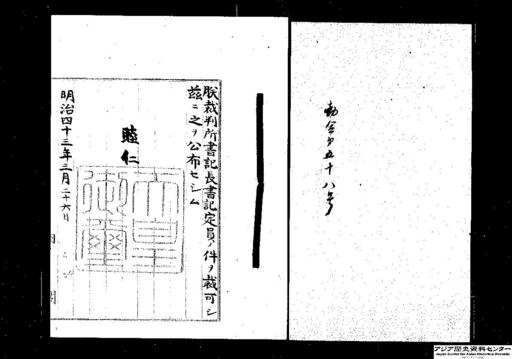 勅令第五十八号
朕裁判所書記長書記定員ノ件ヲ裁可シ
茲ニ之ヲ公布セシム
睦仁
天皇
御璽
明治四十三年三月二十六日
アジア歴史資料センター
Japan Center for Asian Historical Records